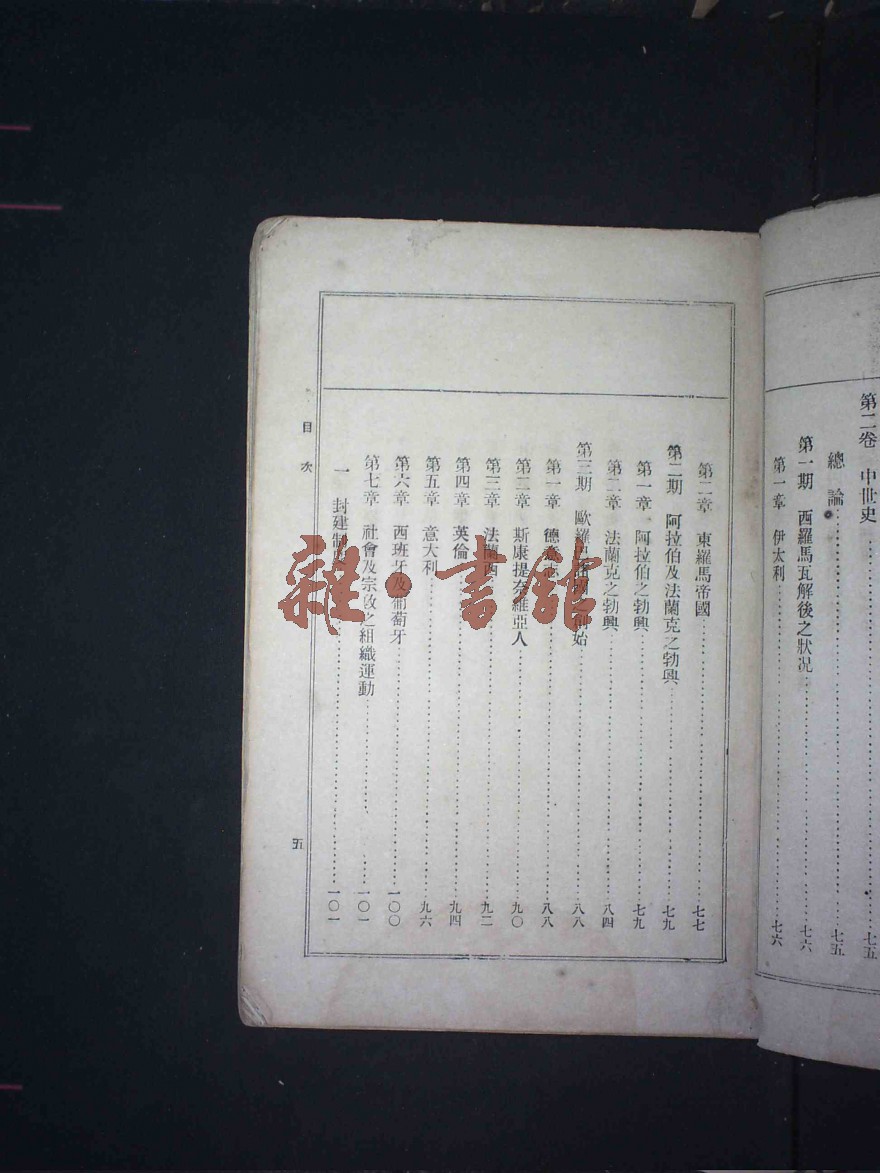 第二卷　中世史……七五
總論……七五
第一期　西羅馬瓦解後之狀況……七六
第一章　伊太利……七六
第二章　東羅馬帝國……七七
第二期　阿拉伯及法蘭克之勃興……七九
第一章　阿拉伯之勃興……七九
第二章　法蘭克之勃興……八四
第三期　歐羅巴……始……八八
第一章　德意志……八八
第二章　斯康提奈維亞人……九〇
第三章　法蘭西……九二
第四章　英倫……九四
第五章　意大利……九六
第六章　西班牙及葡萄牙……一〇〇
第七章　社會及宗政之組織運動……一〇一
一　封建制……一〇一
目次
五
雜·書館